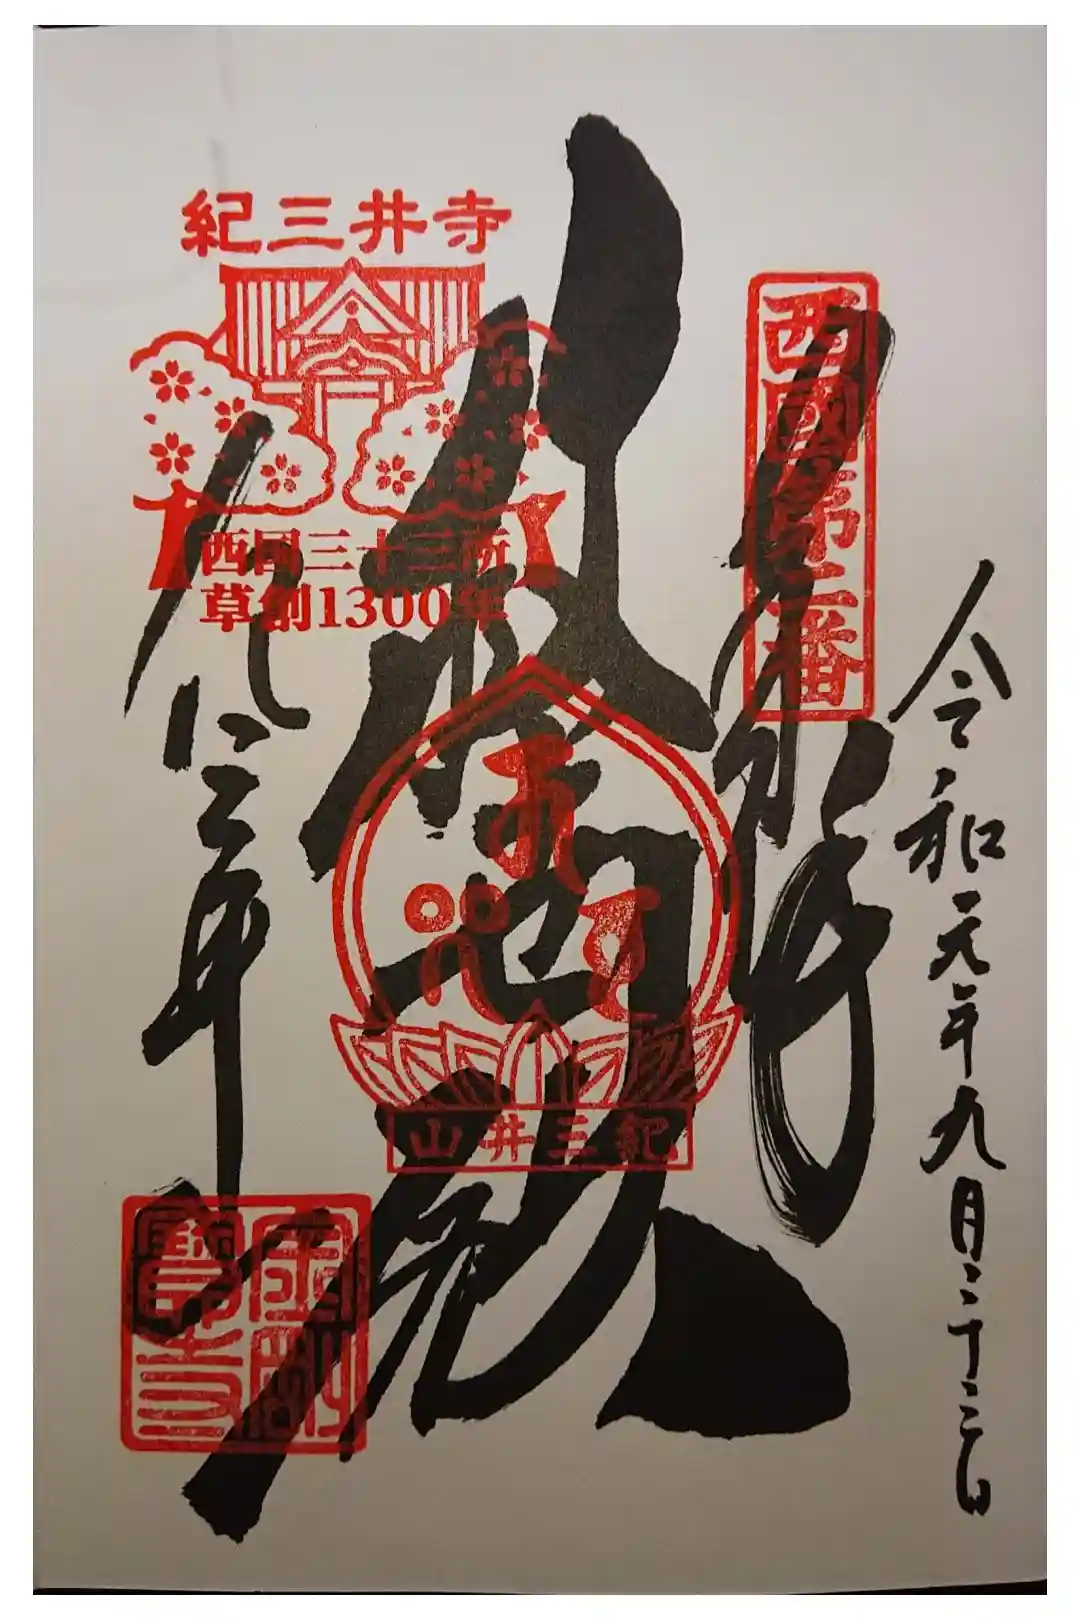 令和元年九月二十三日
西國第二番
奉拝
救世殿
紀三井寺
紀三井寺
西国三十三所
草創1300年
紀三井山
金剛寶寺